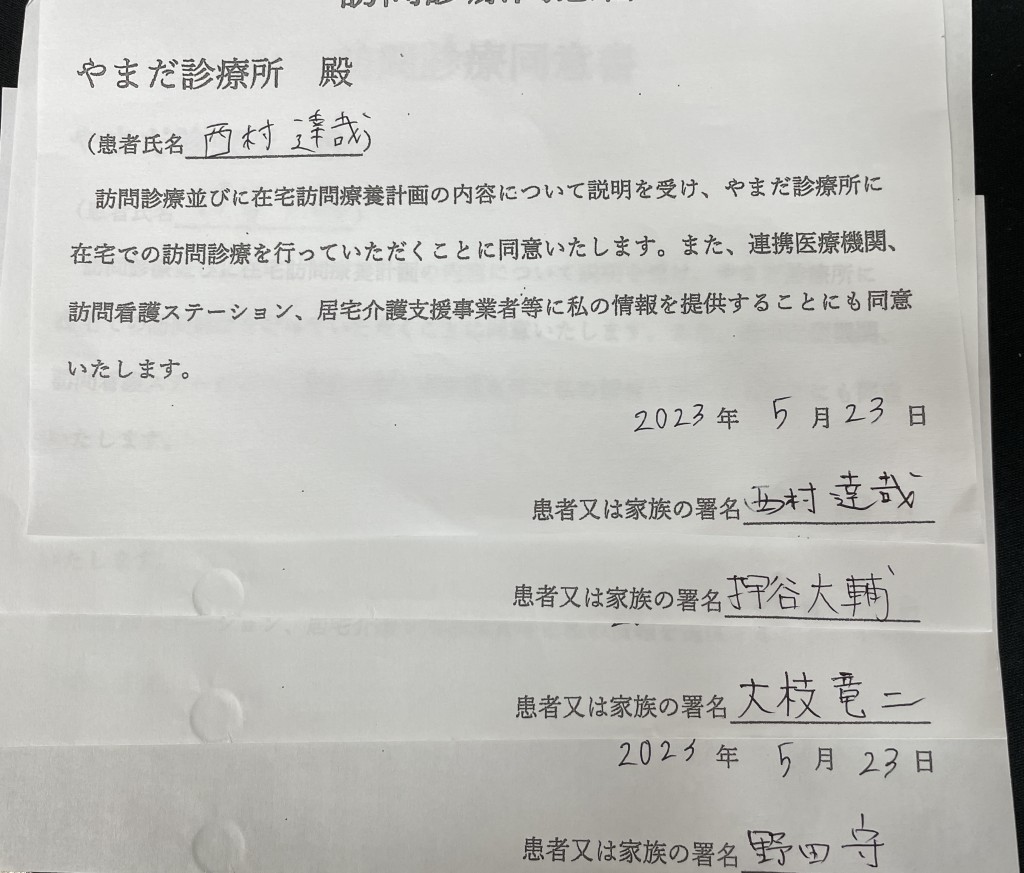 やまだ診療所 殿
(患者氏名 西村 達哉)
訪問診療並びに在宅訪問療養計画の内容について説明を受け、やまだ診療所に
在宅での訪問診療を行っていただくことに同意いたします。また、連携医療機関、
訪問看護ステーション、居宅介護支援事業者等に私の情報を提供することにも同意
いたします。
2023 年 5 月 23 日
患者又は家族の署名 西村 達哉
患者又は家族の署名 押谷大輔
患者又は家族の署名 大枝竜二
2023 年 5 月 23 日
患者又は家族の署名 野田 守